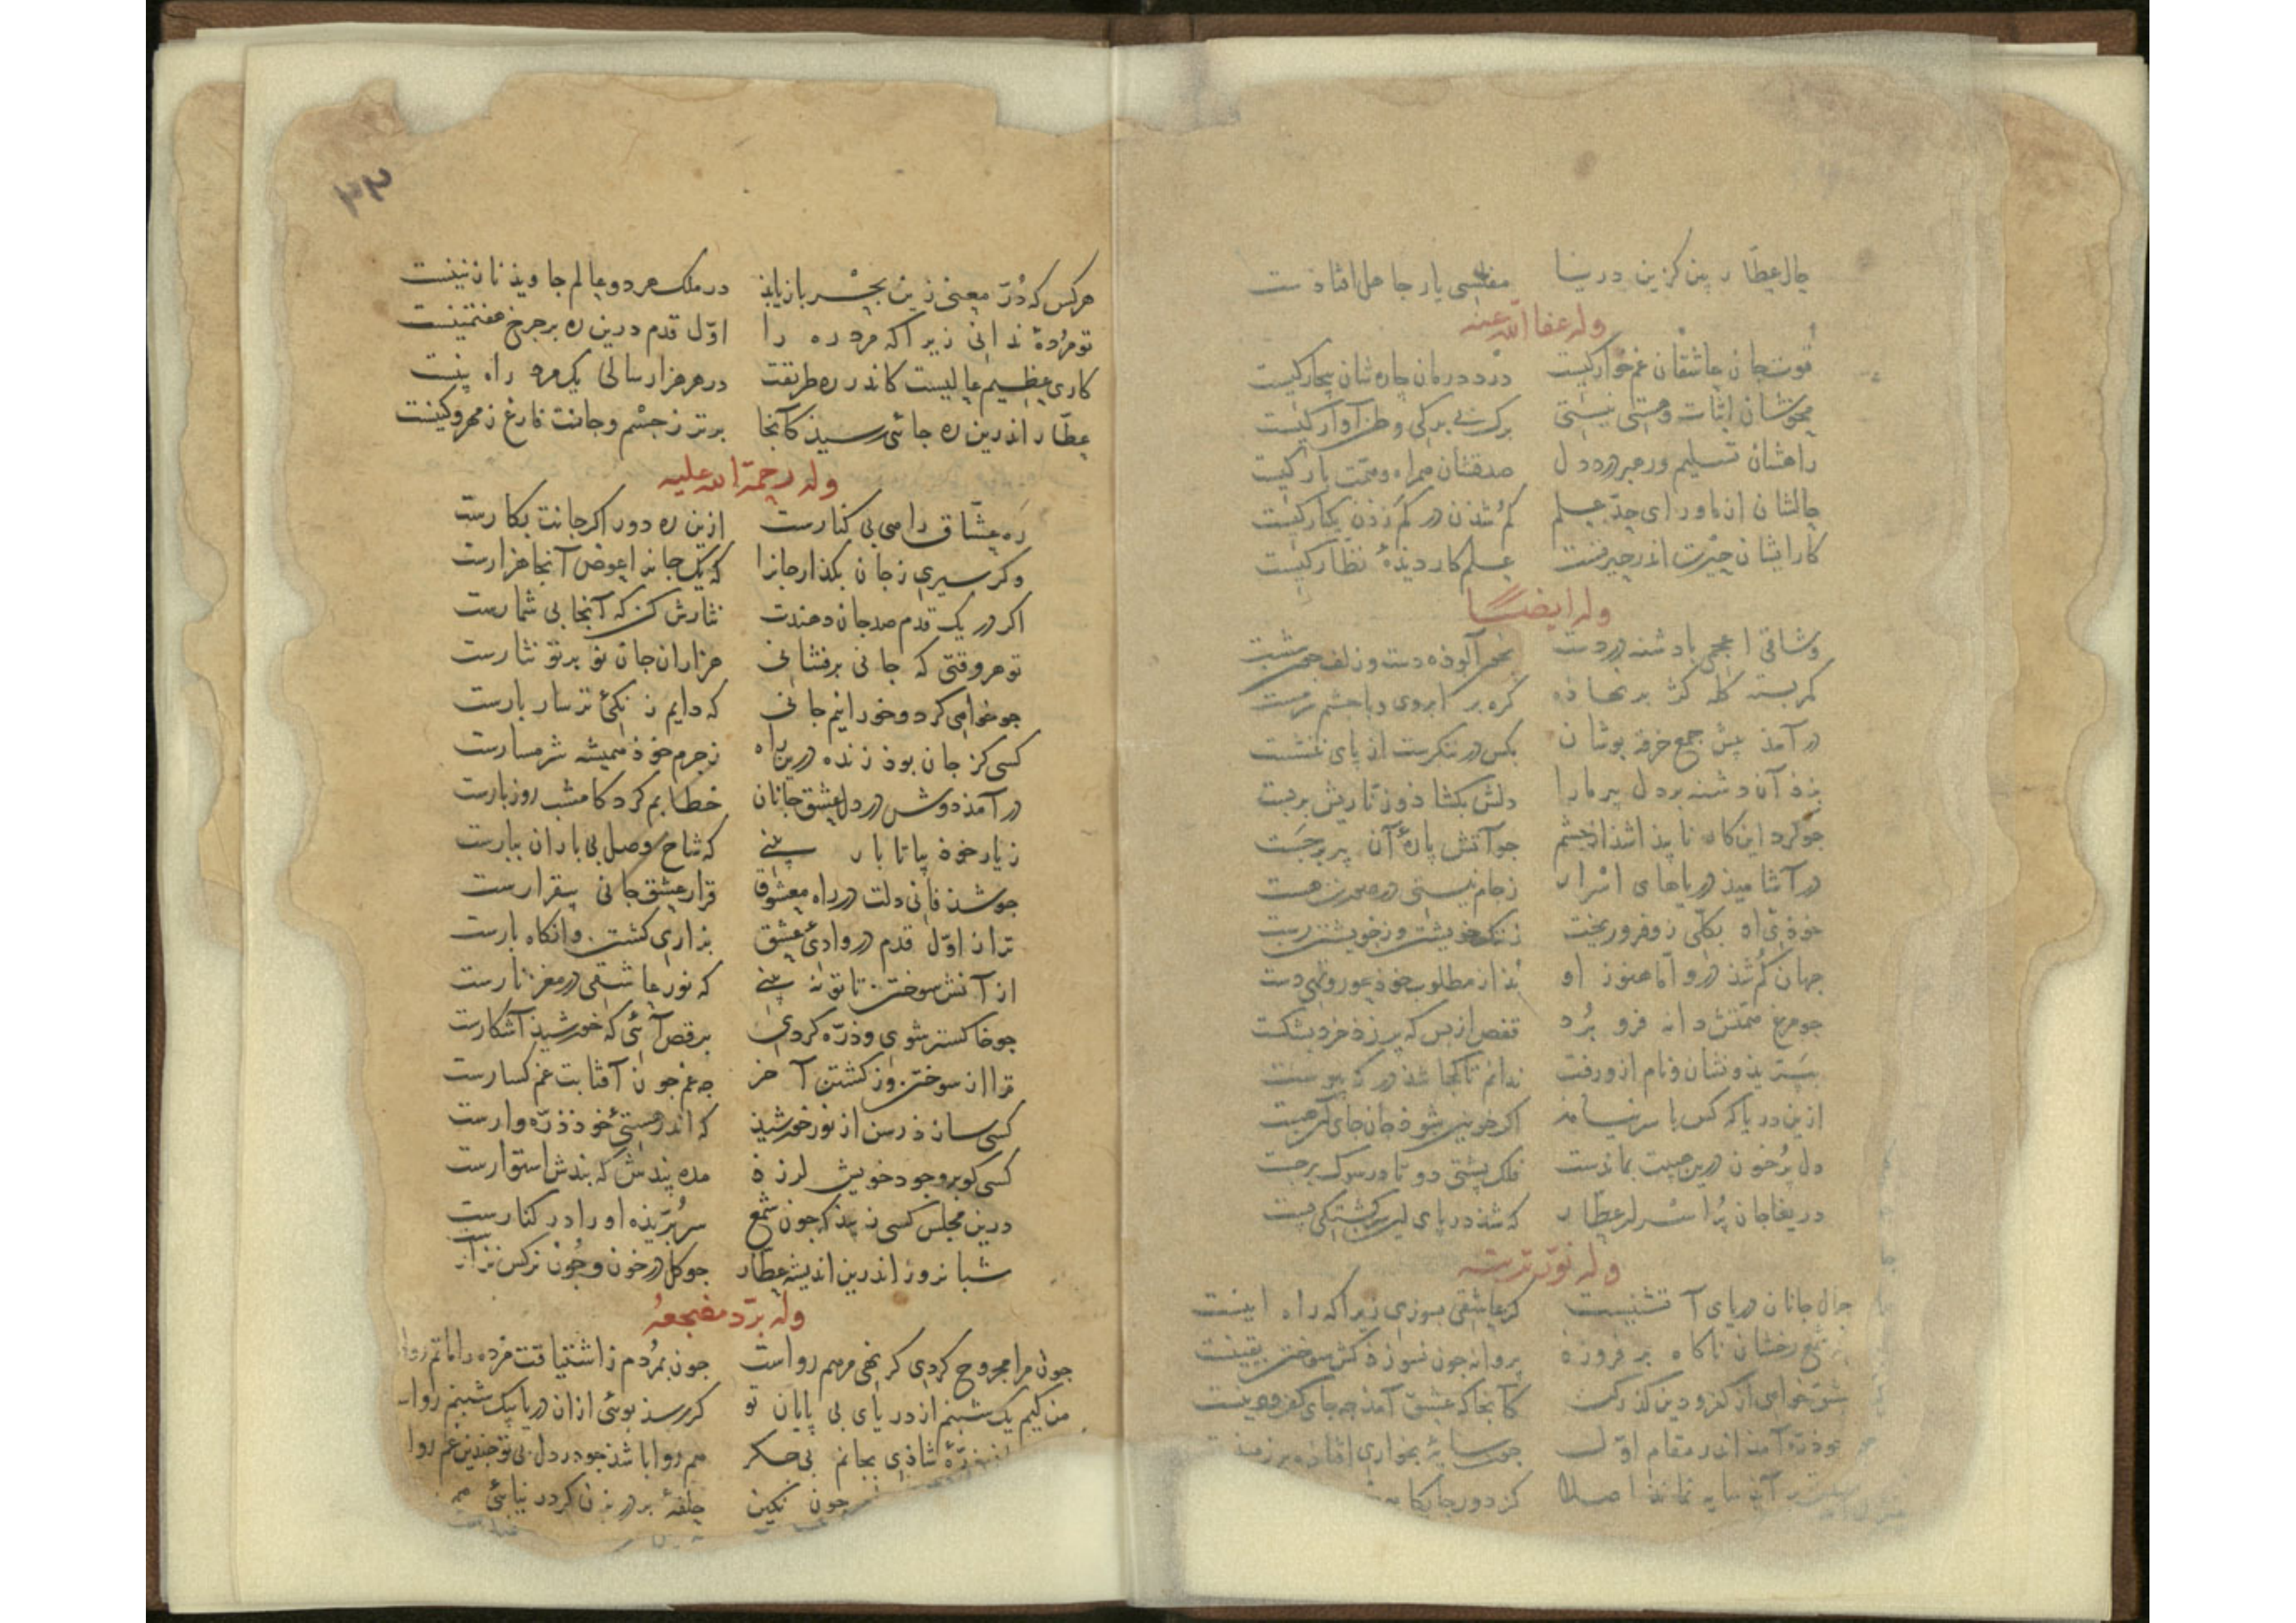 حال عطار بین کزین دریا مفلسی یار جاهل افتاذست
وله عفا الله عنه
قوت جان عاشقان غم‌خوارکیست درد درمان چاره شان بیچارکیست
محوشان اثبات و هستی نیستی برک بی برکی وطن آوارکیست
راهشان تسلیم و رهبر درد دل صدقشان همراه و همت بارکیست
حالشان از ماورای حد علم کم شذن در کم زذن یکبارکیست
کار ایشان حیرت اندر حیرتست علم کار دیذهٔ نظارکیست
وله ایضا
وشاقی اعجمی با دشنه در دست بخون آلوذه دست و زلف چون شست
کمر بسته کله کژ بر نهاذه کره بر ابروی و با چشم سرمست
درآمذ پیش جمع خرقه پوشان بکس در ننکرست از پای ننشست
بزذ آن دشنه بر دل پیر ما را دلش بکشاذ و زناریش بر بست
جو کرد این کار ناپیذا شذ از جشم جو آتش پارهٔ آن پیر برجست
درآشامیذ دریاهای اسرار ز جام نیستی در صورت هست
خوذی او بکلی زو فرو ریخت ز ننک خویشتن وز خویشتن رست
جهان کم شذ درو اما هنوز او بذ از مطلوب خوذ عور و تهی دست
جو مرغ همتش دانه فرو برد قفص از بس که پر زذ خرد بشکست
ببریذ و نشان و نام ازو رفت ندانم تا کجا شذ در که پیوست
ازین دریا که کس با سر نیامذ اکر خونین شوذ جان جای آن هست
دل پر خون درین حیرت بماندست فلک پشتی دو تا در سوک برجست
دریغا جان پر اسرار عطار که شذ در پای این سرکشتکی پست
وله نور تربته
جمال جانان دریای آتشینست کر عاشقی بسوزی زیرا که راه اینست
شمع رخشان ناکاه برفروزذ پروانه جون نسوزذ کش سوختن یقینست
خواهی از کفر و دین کذر کن کآنجا که عشق آمذ جه جای کفر و دینست
جو ذره آمذ اندر مقام اول جون سایهٔ بخواری افتاذه بر زمینست
آن سایه نماند اصلا کز دور جایکاه
۳۲
هر کس که در معنی زین بحر باز یابذ در ملک هر دو عالم جاویذ نازنینست
تو مردهٔ ندانی زیرا که مرد ره را اول قدم درین ره بر جرخ هفتمینست
کاری عظیم عالیست کاندر ره طریقت در هر هزار سالی یک مرد راه بینست
عطار اندرین ره جائی رسیذ کآنجا برتر ز جسم و جانست فارغ ز مهر و کینست
وله رحمة الله علیه
ره عشاق راهی بی کنارست ازین ره دور اکر جانت بکارست
وکر سیری ز جان بکذار جانرا که یک جانرا عوض آنجا هزارست
اکر در یک قدم صد جان دهندت نثارش کن که آنجا بی شمارست
تو هر وقتی که جانی برفشانی هزاران جان نو بر تو نثارست
جو خواهی کرد و خود را نیم جانی که دایم زندکئ تر سار بارست
کسی کز جان بوذ زنده درین راه ز جرم خوذ همیشه شرمسارست
درآمذ دوش در دل عشق جانان خطابم کرد کامشب روز بارست
ز یار خوذ بیا تا بار بینی که شاخ وصل بی باران ببارست
جو شذ فانی دلت در راه معشوق قرار عشق جانی بیقرارست
ترا از اول قدم در وادی عشق بزاری کشتن و آنکاه بارست
از آنش سوختن تا تو نه بینی که نور عاشقی در مغز نارست
جو خاکستر شوی و ذره کردی برقص آئی که خورشیذ آشکارست
ترا از سوختن وز کشتن آخر جه غم جون آفتابت غم کسارست
کسی سازذ رسن از نور خورشیذ که اندر هستئ خوذ ذره وارست
کسی کو بر وجود خویش لرزذ مده پندش که بندش استوارست
درین مجلس کسی زیبذ که جون شمع سر بریذه او را در کنارست
شبانروز اندرین اندیشه عطار جو کل در خون و جون نرکس نزارست
وله برد مضجعه
جون مرا مجروح کردی کر نهی مرهم رواست جون بمردم ز اشتیاقت مرده را ماتم روا
من کیم یک شبنم از دریای بی پایان تو کر رسذ بوئی ازان دریا بیک شبنم روا
ذرهٔ شاذی بجانم بی حکر هم روا باشذ جو در دل بی تو جندین غم روا
جون نکین حلقهٔ بر در زن